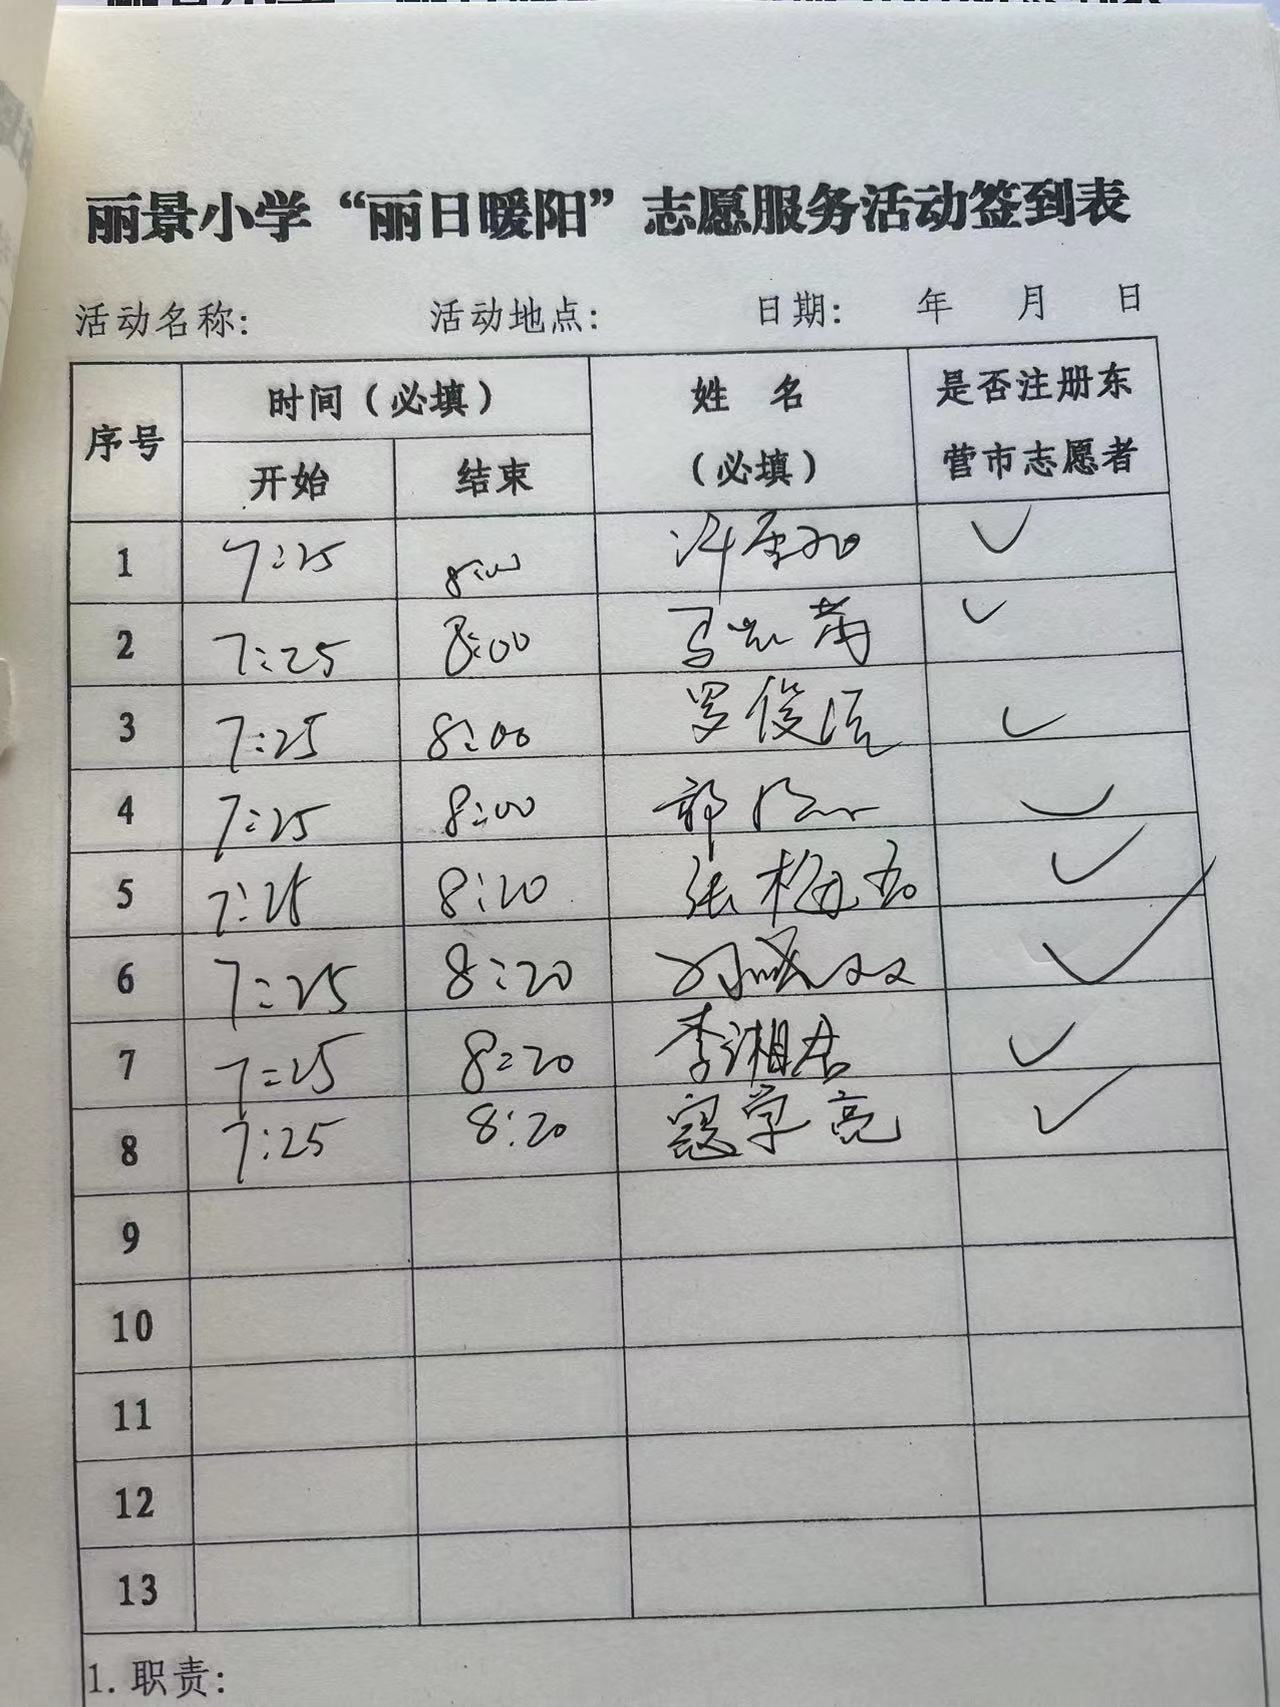 丽景小学“丽日暖阳”志愿服务活动签到表
活动名称: 活动地点: 日期: 年 月 日
序号 时间（必填） 姓 名 （必填） 是否注册东营市志愿者
开始 结束
1 7:25 8:00
2 7:25 8:00 马
3 7:25 8:00 罗俊
4 7:25 8:00 郭
5 7:25 8:20 张梅
6 7:25 8:20 刘
7 7:25 8:20 李湘君
8 7:25 8:20 寇学亮
9
10
11
12
13
1.职责: